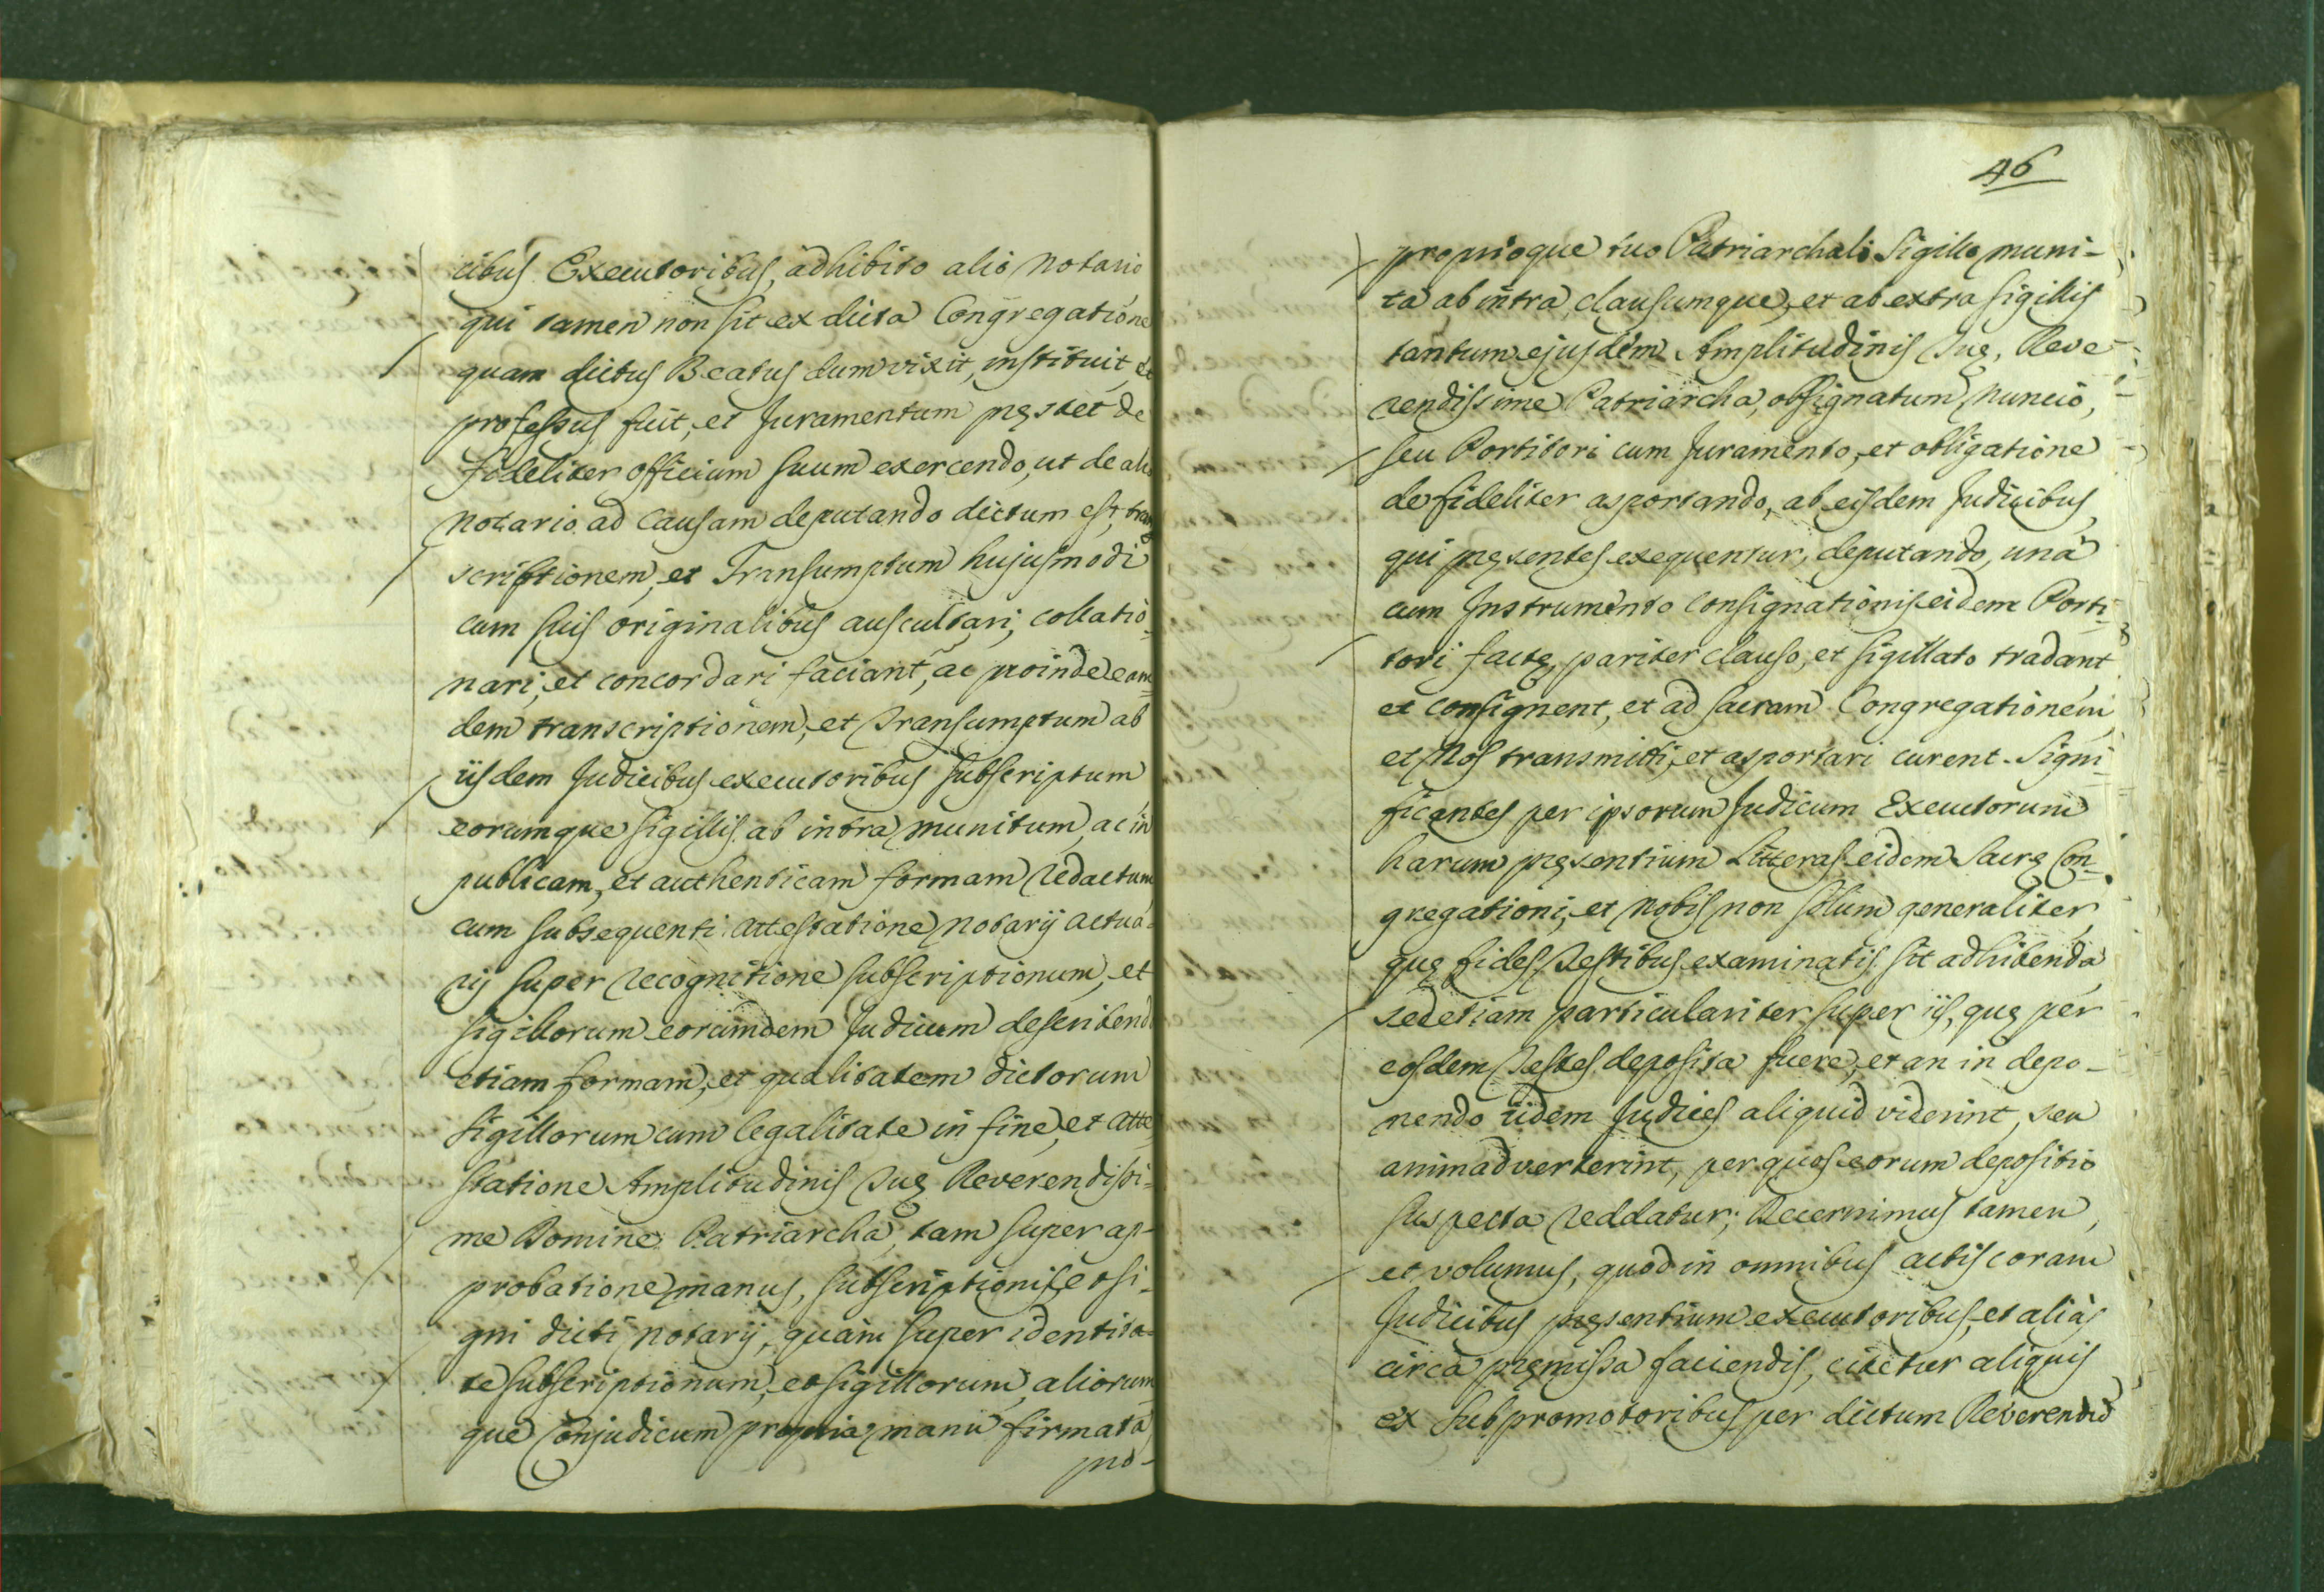 cibus Executoribus, adhibito alio Notario
qui tamen non sit ex dicta Congregatione
quam dictus Beatus dum vixit, instituit, et
professus fuit, et Juramentum pręstet de
fideliter officium suum exercendo, ut de alio
Notario ad Causam deputando dictum est, tran
scriptionem, et Transumptum hujusmodi
cum suis originalibus auscultari, collatio-
nari, et concordari faciant, ac proinde eam-
dem transcriptionem, et Transumptum ab
iisdem Judicibus executoribus subscriptum
eorumque sigillis ab intra munitum, ac in
publicam, et authenticam formam redactum
cum subsequenti attestatione Notarij actua-
rij super recognitione subscriptionum, et
sigillorum eorumdem Judicum describendo
etiam formam, et qualitatem dictorum
sigillorum cum legalitate in fine, et atte
statione Amplitudinis Tuę Reverendissi-
me Domine Patriarcha, tam super ap-
probatione manus, subscriptionis, et si-
gni dicti Notarij, quàm super identita-
te subscriptionum, et sigillorum, aliorum
que Conjudicum propria manu firmata,
pro-
46
proprioque tuo Patriarchali Sigillo muni-
ta ab intra, clausumque, et ab extra sigillis
tantum ejusdem Amplitudinis Tuę, Reve-
rendissime Patriarcha, obsignatum Nuncio,
seu Portitori cum Juramento, et obligatione
de fideliter asportando, ab eisdem Judicibus,
qui pręsentes exequentur, deputando, unà
cum Instrumento consignationis eidem Porti-
tori factę, pariter clauso, et sigillato tradant
et consignent, et ad sacram Congregationem,
et Nos transmitti, et asportari curent. Signi-
ficantes per ipsorum Judicum Executorum
harum pręsentium Litteras eidem Sacrę Con-
gregationi, et Nobis non solum generaliter,
quę fides Testibus examinatis sit adhibenda
sed etiam particulariter super iis, quę per
eosdem Testes deposita fuere, et an in depo-
nendo iidem Judices aliquid viderint, seu
animadverterint, per quos eorum depositio
suspecta reddatur; Decernimus tamen,
et volumus, quod in omnibus actis coram
Judicibus pręsentium executoribus, et aliàs
circa pręmissa faciendis, citetur aliquis
ex Subpromotoribus per dictum Reverendū